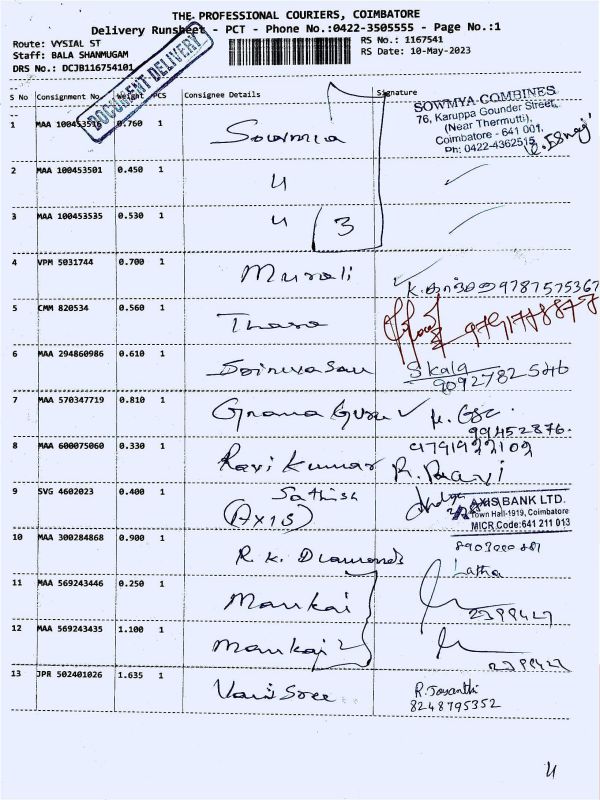 THE PROFESSIONAL COURIERS, COIMBATORE
Delivery Runsheet - PCT - Phone No.:0422-3505555 - Page No.:1
Route: VYSIAL ST
RS No.: 1167541
Staff: BALA SHANMUGAM
RS Date: 10-May-2023
DRS No.: DCJB116754101
DOCUMENT DELIVERY
S No Consignment No. Weight PCS Consignee Details Signature
SOWMYA COMBINES
76, Karuppa Gounder Street,
(Near Thermutti),
Coimbatore - 641 001.
Ph: 0422-4362515
1 MAA 0.760 1 Sowmia
2 MAA 100453501 0.450 1 "
3 MAA 100453535 0.530 1 " 3
4 VPM 5031744 0.700 1 Murali 9787575367
5 CMM 820534 0.560 1 Thara
6 MAA 294860986 0.610 1 Srinivasan S kala
9092782546
7 MAA 570347719 0.810 1 Gnana Guru
99452876.
8 MAA 600075060 0.330 1 Ravi Kumar R. Ravi
9 SVG 4602023 0.400 1 Sathish
(AXIS)
AXIS BANK LTD.
Town Hall-1919, Coimbatore
MICR Code:641 211 013
10 MAA 300284868 0.900 1 R. K. Diamonds Latha
11 MAA 569243446 0.250 1 Mankai 2399427
12 MAA 569243435 1.100 1 Mankai 2 2399427
13 JPR 502401026 1.635 1 Vani Sree R. Jayanthi
8248795352